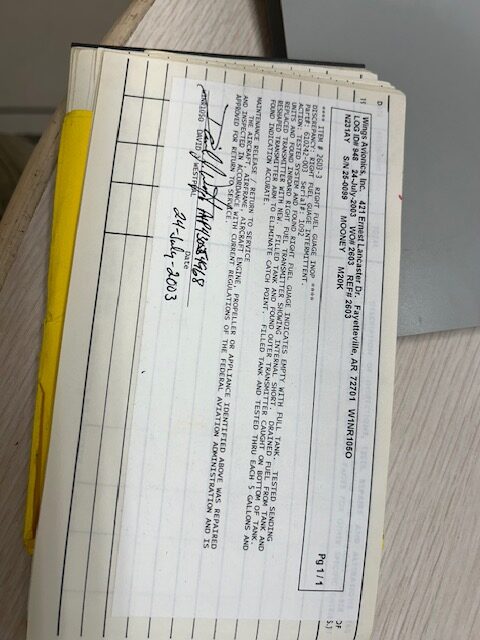 Wings Avionics, Inc. 421 Ernest Lancaster Dr. Fayetteville, AR 72701 W1NR105O
LOG ID# 948 24-July-2003 WO# 2603 REF# 2603
N231AY S/N 25-0099 MOONEY M20K
Pg 1 / 1
**** ITEM # 2603-3 RIGHT FUEL GUAGE INOP ****
DISCREPANCY: RIGHT FUEL GUAGE INTERMITTENT.
Part#: 610242-003 Serial#: 1092
ACTION: TESTED SYSTEM AND FOUND RIGHT FUEL GUAGE INDICATES EMPTY WITH FULL TANK. TESTED SENDING
UNITS AND FOUND INBOARD RIGHT FUEL TRANSMITTER SHOWING INTERNAL SHORT. DRAINED FUEL FROM TANK AND
REPLACED TRANSMITTER WITH NEW. FILLED TANK AND FOUND OUTER TRANSMITTER CAUGHT ON BOTTOM OF TANK.
RESHAPED TRANSMITTER ARM TO ELIMINATE CATCH POINT. FILLED TANK AND TESTED THRU EACH 5 GALLONS AND
FOUND INDICATION ACCURATE.
MAINTENANCE RELEASE / RETURN TO SERVICE
THE AIRCRAFT, AIRFRAME, AIRCRAFT ENGINE, PROPELLER OR APPLIANCE IDENTIFIED ABOVE WAS REPAIRED
AND INSPECTED IN ACCORDANCE WITH CURRENT REGULATIONS OF THE FEDERAL AVIATION ADMINISTRATION AND IS
APPROVED FOR RETURN TO SERVICE.
DAVID WESTPHAL
Date
24-July-2003